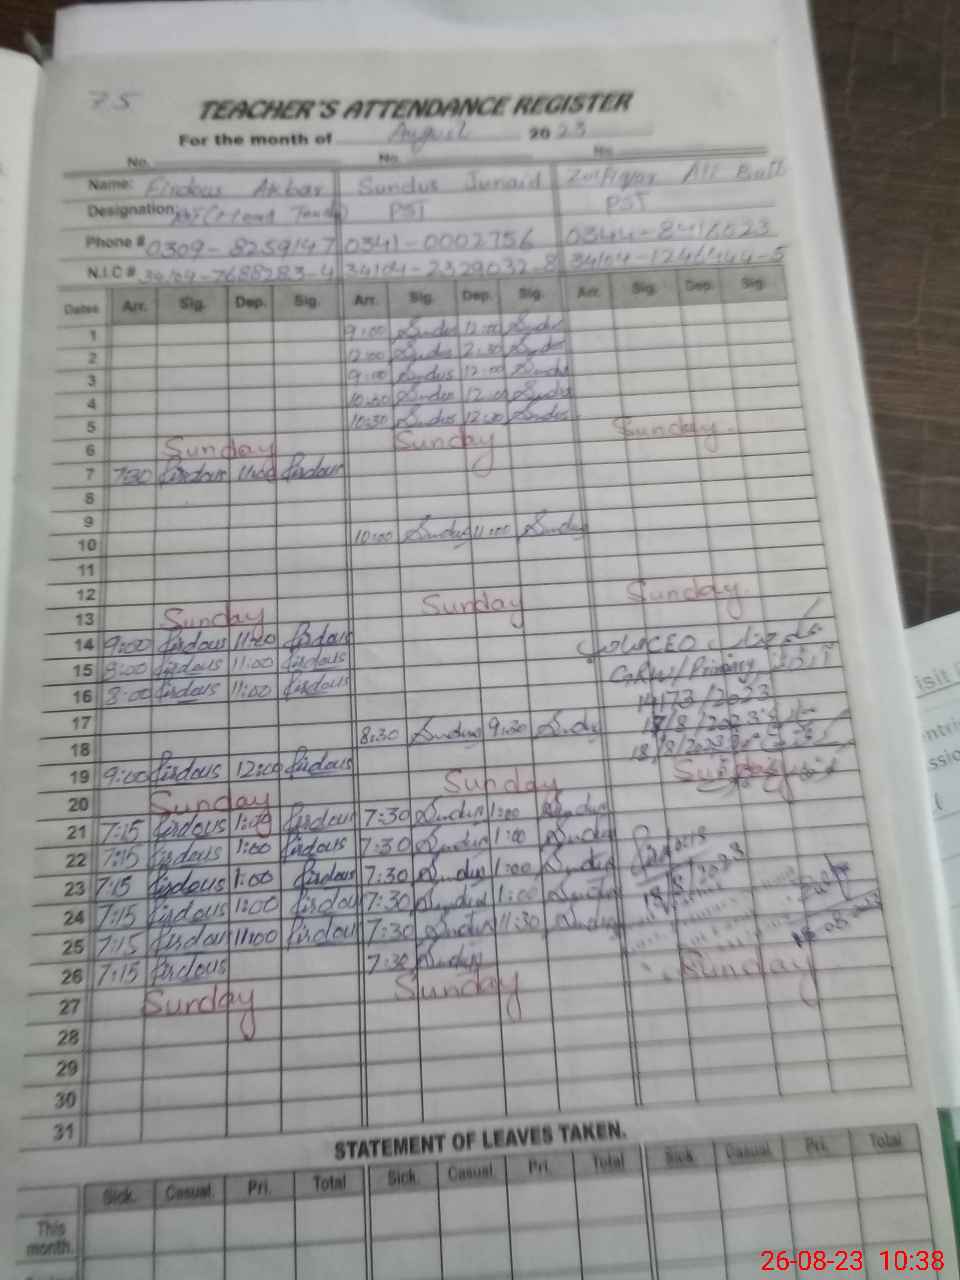 75
TEACHER'S ATTENDANCE REGISTER
For the month of August 2023
No. No. No.
Name: Firdous Akbar Sundus Junaid Zulfiqar Ali Butt
Designation: PST PST
Phone # 0309-8259147 0341-0002756
N.I.C #
Dates Arr. Sig. Dep. Sig. Arr. Sig. Dep. Sig. Arr. Sig. Dep. Sig.
1 9:00 Sundus 12:00 Sundus
2 12:00 Sundus 2:30 Sundus
3 9:00 Sundus 12:00 Sundus
4 10:30 Sundus 12:00 Sundus
5 10:30 Sundus 12:00 Sundus
6 Sunday Sunday Sunday
7 7:30 firdous 11:00 firdous
8
9
10 10:00 Sundus 11:00 Sundus
11
12
13 Sunday Sunday Sunday
14 9:00 firdous 11:00 firdous
15 8:00 firdous 11:00 firdous CEO
16 8:00 firdous 11:00 firdous GRW/Primary
14173/2023
17 18/8/2023
18 8:30 Sundus 9:30 Sundus 18/8/2023
19 9:00 firdous 12:00 firdous
20 Sunday Sunday Sunday
21 7:15 firdous 1:00 firdous 7:30 Sundus 1:00 Sundus
22 7:15 firdous 1:00 firdous 7:30 Sundus 1:00 Sundus
23 7:15 firdous 1:00 firdous 7:30 Sundus 1:00 Sundus 18/8/2023
24 7:15 firdous 1:00 firdous 7:30 Sundus 1:00 Sundus
25 7:15 firdous 11:00 firdous 7:30 Sundus 11:30 Sundus
26 7:15 firdous 7:30 Sundus
27 Sunday Sunday Sunday
28
29
30
31
STATEMENT OF LEAVES TAKEN.
Sick. Casual. Pri. Total Sick. Casual. Pri. Total Sick. Casual. Pri. Total
This
month.
26-08-23 10:38